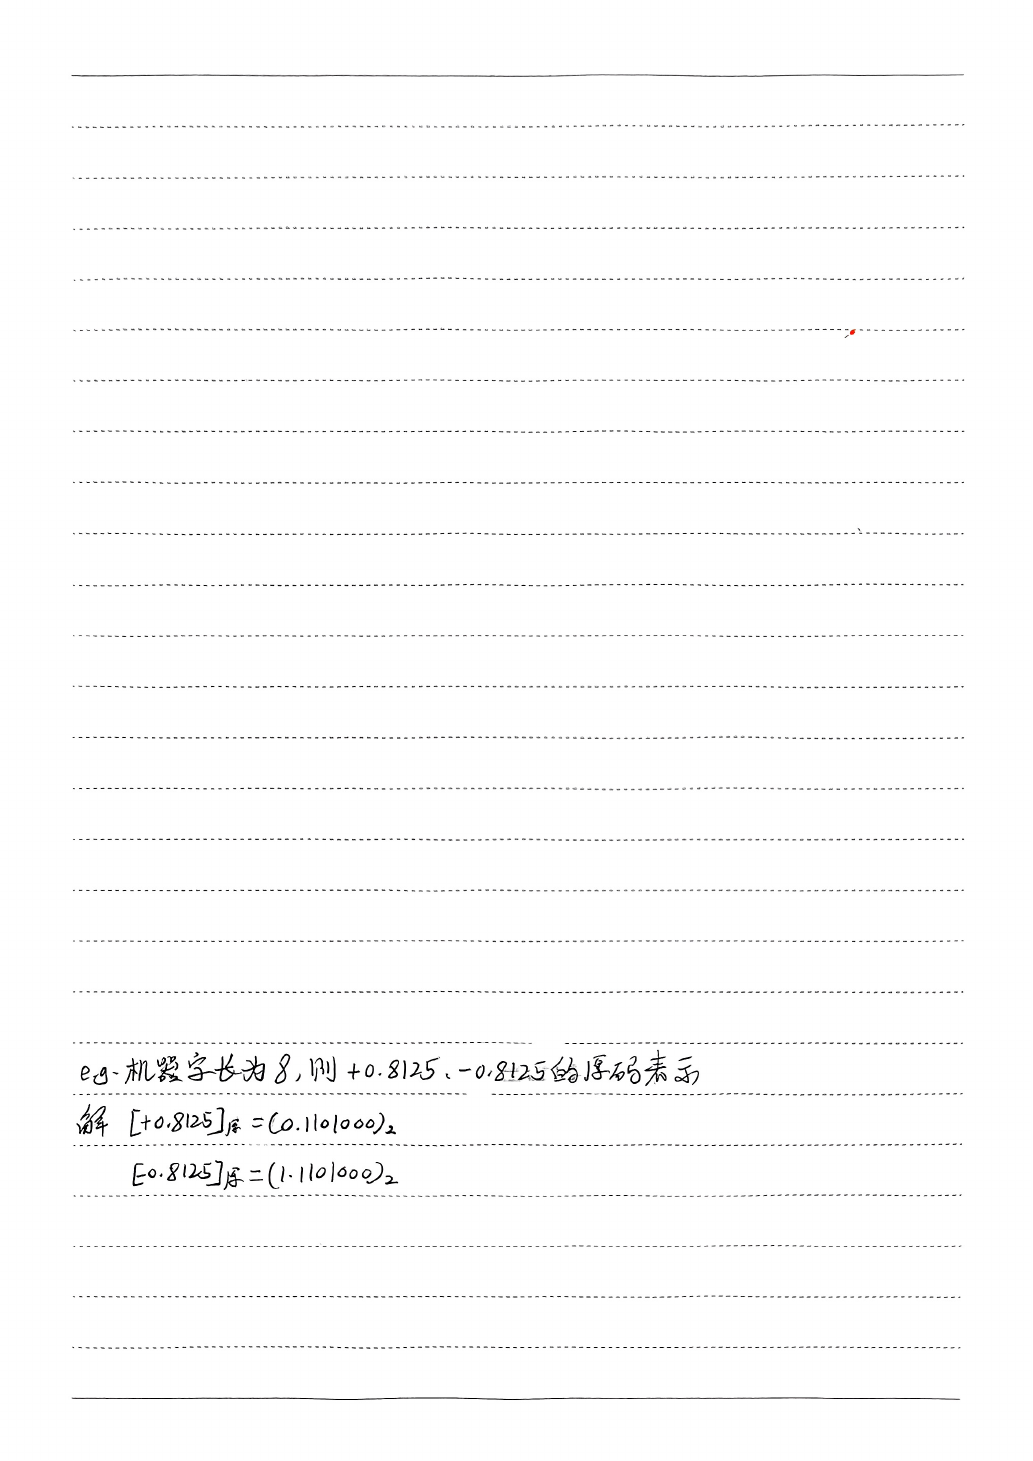 eg. 机器字长为8,则 +0.8125、-0.8125的原码表示
解 [+0.8125]原 = (0.1101000)₂
[-0.8125]原 = (1.1101000)₂